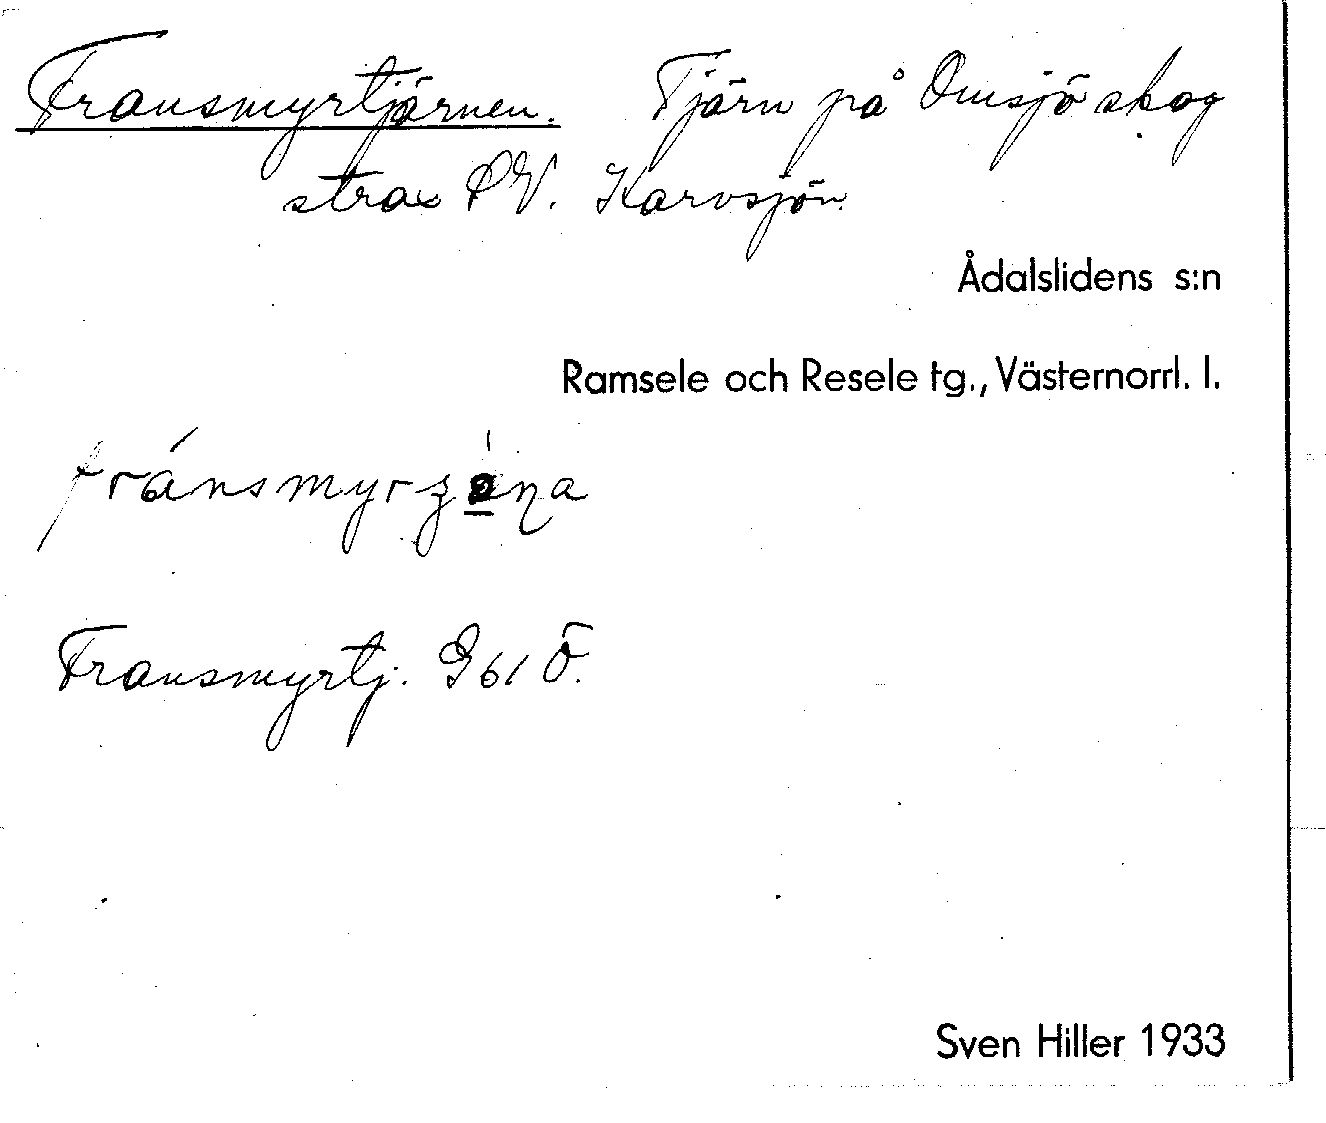 Fransmyrtjärnen. Tjärn på Omsjö skog
strax SV. Karvsjön.
Ådalslidens s:n
Ramsele och Resele tg., Västernorrl. l.
Fransmyrtj. G 61 Ö.
Sven Hiller 1933